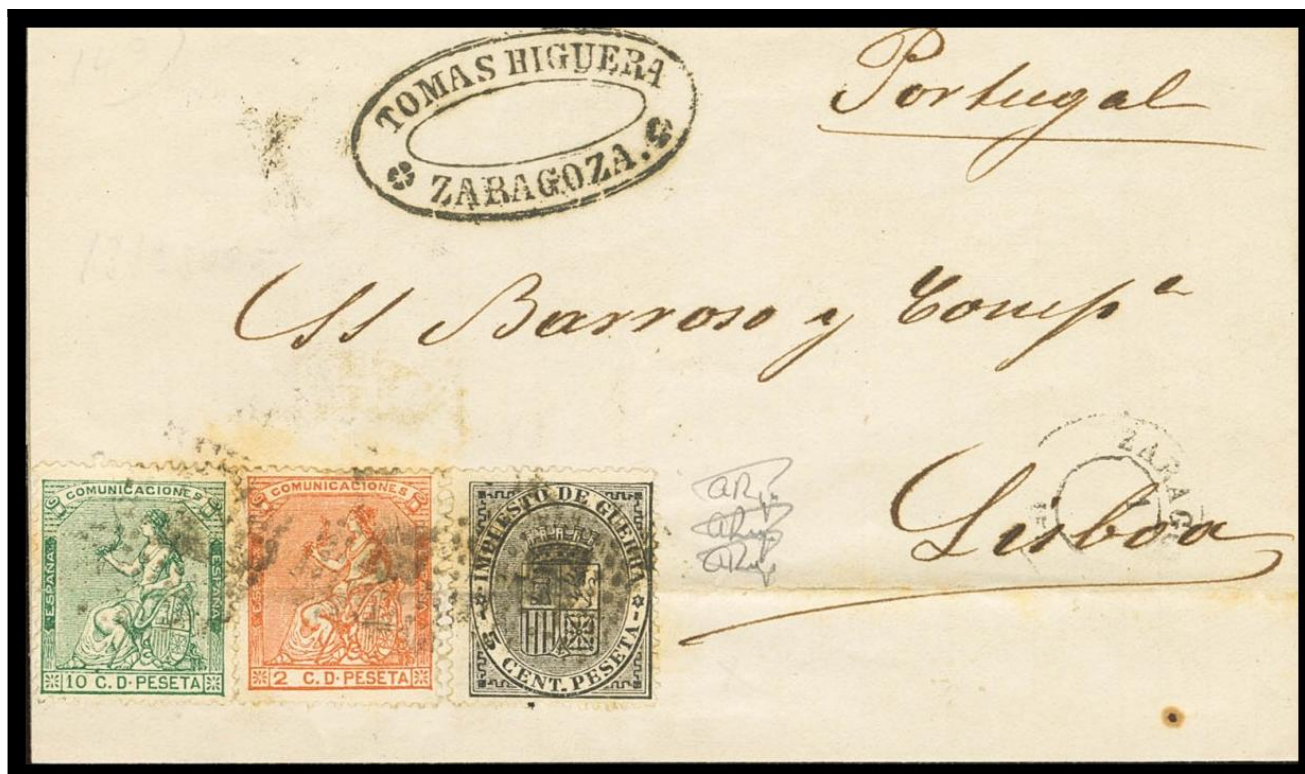 TOMAS HIGUERA
ZARAGOZA.
Portugal
SS Barroso y Compª
Lisboa
ZARAGO
COMUNICACIONES
ESPAÑA
ESPAÑA
10 C. D. PESETA
COMUNICACIONES
2 C. D. PESETA
IMPUESTO DE GUERRA
5 CENT. PESETA